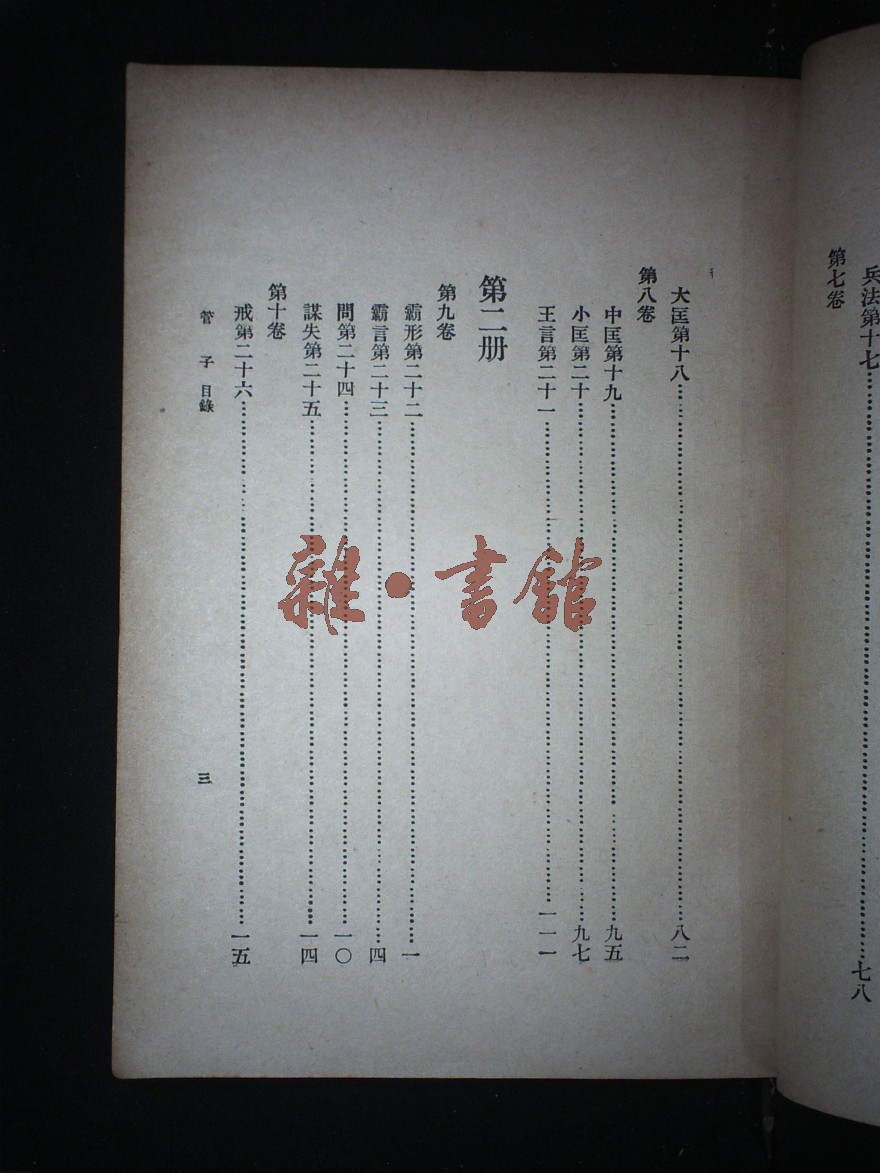 兵法第十七……七八
第七卷
大匡第十八……八二
第八卷
中匡第十九……九五
小匡第二十……九七
王言第二十一……一一一
第二册
第九卷
霸形第二十二……一
霸言第二十三……四
問第二十四……一〇
謀失第二十五……一四
第十卷
戒第二十六……一五
管子 目錄
三
雜·書館